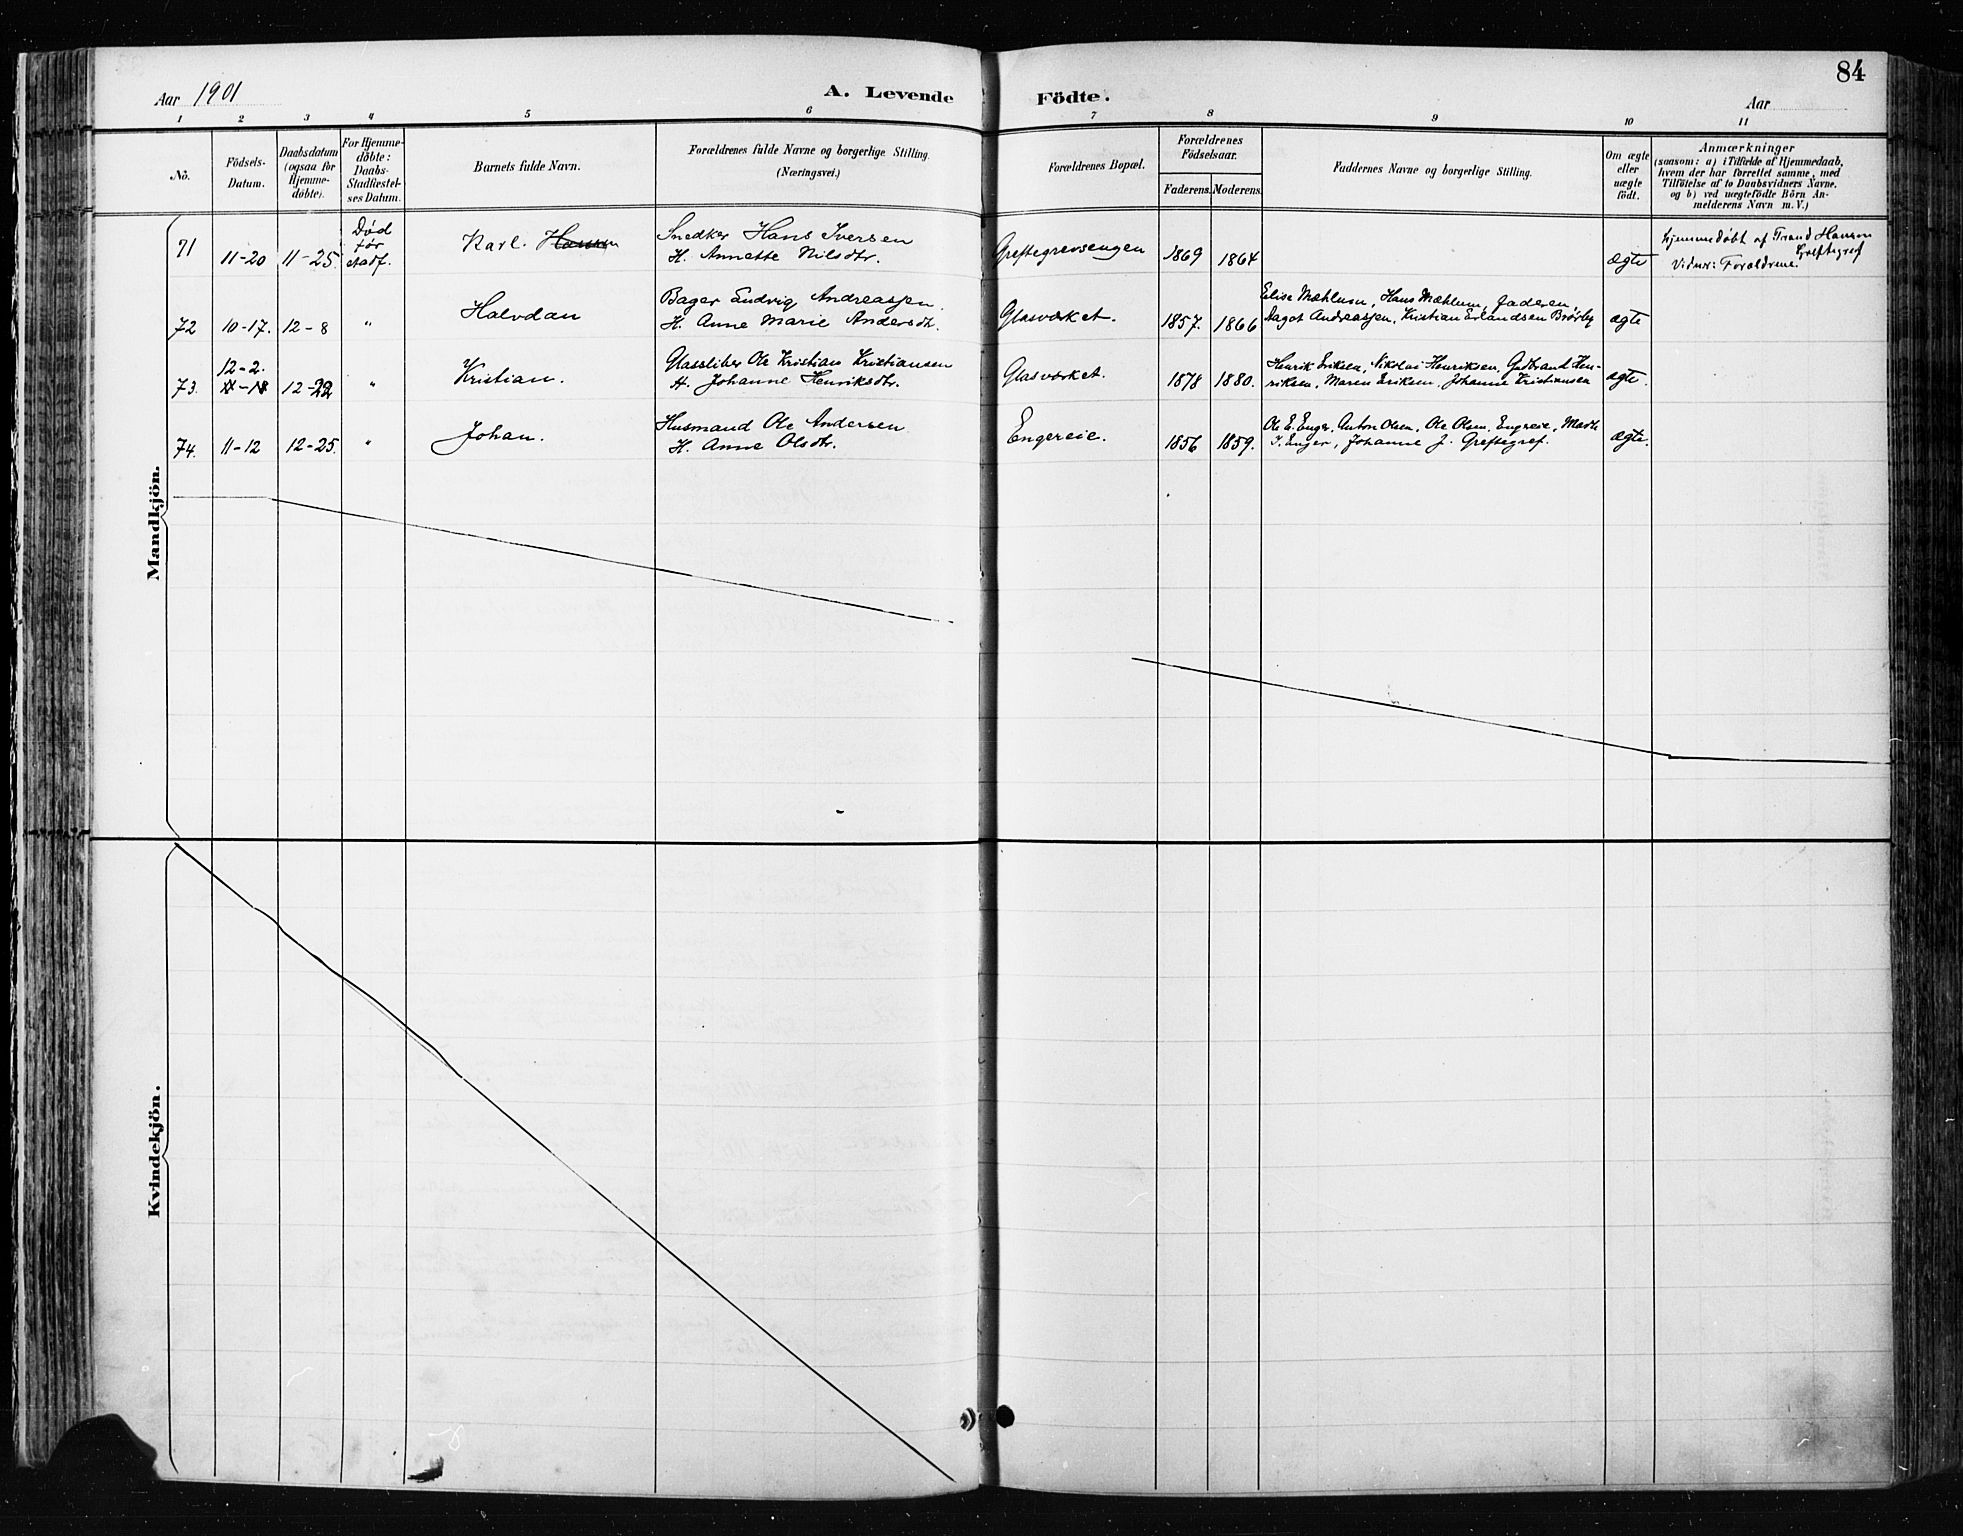 84
Aar 1901
A. Levende Födte.
Aar
1 2 3 4 5 6 7 8 9 10 11
No.
Födsels-
Datum.
Daabsdatum
(ogsaa för
Hjemme-
döbte).
For Hjemme-
döbte:
Daabs-
Stadfæstel-
ses Datum.
Barnets fulde Navn.
Forældrenes fulde Navne og borgerlige Stilling.
(Næringsvei.)
Forældrenes Bopæl.
Forældrenes
Födselsaar.
Faderens. Moderens.
Faddernes Navne og borgerlige Stilling.
Om ægte
eller
uægte
födt.
Anmærkninger
(saasom: a) i Tilfælde af Hjemmedaab,
hvem der har forrettet samme, med
Tilföielse af to Daabsvidners Navne,
og b) ved uægtefödte Börn An-
melderens Navn m. V.)
Mandkjön.
71
11-20
11-25
Død
før
stadf.
Karl. Hansen
Snedker Hans Iversen
H. Annette Nilsdtr.
Greftegrevsengen
1869
1864
ægte
Hjemmedøbt af Trand Hansen
Greftegref
Vidner: Forældrene.
72
10-17.
12-8
"
Halvdan
Bager Ludvig Andreassen
H. Anne Marie Andersdtr.
Glasværket.
1857.
1866
Elise Mæhlum, Hans Mæhlum, Faderen,
Dagot Andreassen, Kristian Erlandsen Brørby
ægte
73.
12-2.
11-18
12-22
"
Kristian.
Glassliber Ole Kristian Kristiansen
H. Johanne Henriksdtr.
Glasværket.
1878
1880.
Henrik Eriksen, Nikolai Henriksen, Gudbrand Hen-
riksen, Maren Eriksen, Johanne Kristiansen
ægte.
74.
11-12
12-25.
"
Johan.
Husmand Ole Andersen
H. Anne Olsdtr.
Engereie.
1856
1859.
Ole E. Enger, Anton Olsen, Ole Olsen, Engreie, Marth
I. Enger, Johanne J. Greftegref.
ægte.
Kvindekjön.